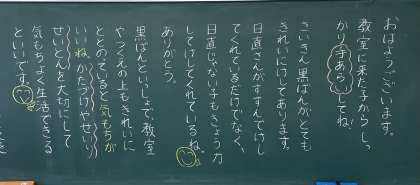 おはようございます。
教室に来た子からしっ
かり手あらいしてね。
さいきん黒ばんがとても
きれいにけしてあります。
日直さんがすすんでけし
てくれているだけでなく、
日直じゃない子もきょう力
してけしてくれているね。
ありがとう。
黒ばんといっしょで、教室
やつくえの上もきれいに
ととのっていると気もちが
いいね。かたづけやせいり
せいとんを大切にして
気もちよく生活できる
といいです。